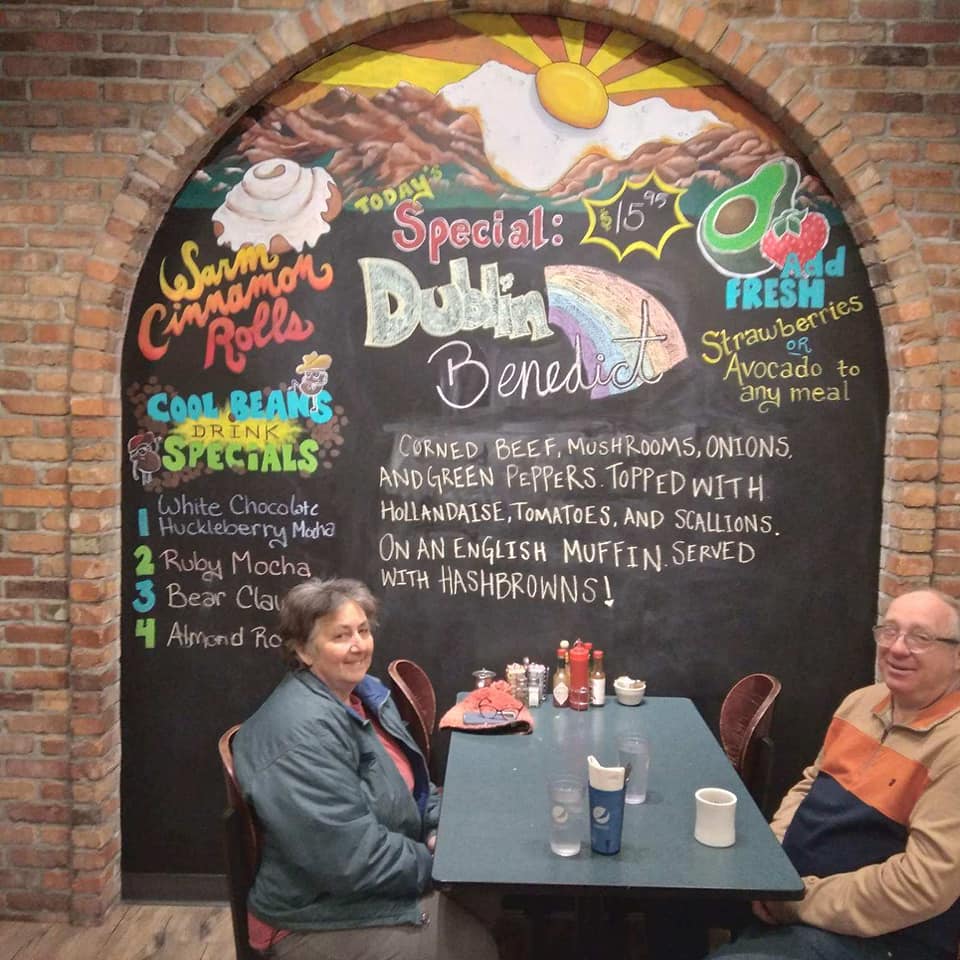 TODAY'S
Special:
$15.95
Dublin
Benedict
CORNED BEEF, MUSHROOMS, ONIONS,
AND GREEN PEPPERS. TOPPED WITH
HOLLANDAISE, TOMATOES, AND SCALLIONS.
ON AN ENGLISH MUFFIN. SERVED
WITH HASHBROWNS!
Warm
Cinnamon
Rolls
COOL BEANS
DRINK
SPECIALS
1 White Chocolate
Huckleberry Mocha
2 Ruby Mocha
3 Bear Claw
4 Almond
Add
FRESH
Strawberries
OR
Avocado to
any meal